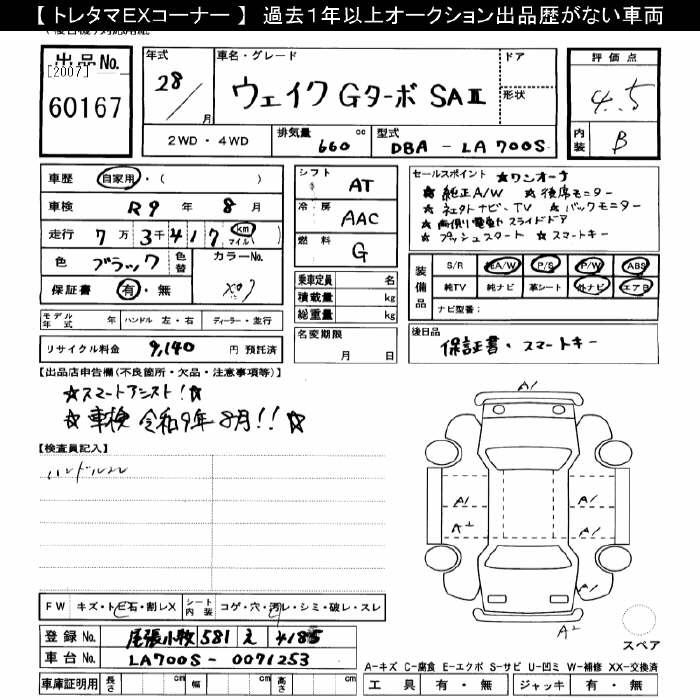 【 トレタマEXコーナー 】 過去1年以上オークション出品歴がない車両
出品No. [2007] 60167
年式 28/ 月
車名・グレード ウェイク Gターボ SAⅡ
ドア 形状
評価点 4.5
内装 B
2WD ・ 4WD 排気量 660 cc 型式 DBA - LA700S
車歴 自家用・( )
車検 R9 年 8 月
走行 7 万 3 千 417 km マイル
色 ブラック 色替 カラーNo. X07
保証書 有・無
モデル年式 年 ハンドル 左・右 ディーラー・並行
リサイクル料金 9,140 円 預託済
シフト AT
冷房 AAC
燃料 G
乗車定員 名
積載量 kg
総重量 kg
名変期限 月 日
セールスポイント ★ワンオーナ
★ 純正A/W ☆ 後席モニター
★ 社外ナビ、TV ★ バックモニター
★ 両側電動スライドドア
★ プッシュスタート ☆ スマートキー
装備品 S/R 純A/W P/S P/W ABS
純TV 純ナビ 革シート 外ナビ エアB
ナビ型番:
後日品
保証書・スマートキー
【出品店申告欄(不良箇所・欠品・注意事項等)】
☆スマートアシスト!☆
☆ 車検 令和9年8月!! ☆
【検査員記入】
ハンドルスレ
A1
A1
A1
A2
A1
A1
A2
スペア
FW キズ・トビ石・割レX シート内装 コゲ・穴・汚レ・シミ・破レ・スレ
登録No. 尾張小牧 581 え 4185
車台No. LA700S - 0071253
車庫証明用 長さ cm 幅 cm 高さ cm
A-キズ C-腐食 E-エクボ S-サビ U-凹ミ W-補修 XX-交換済
工具 有・無 ジャッキ 有・無